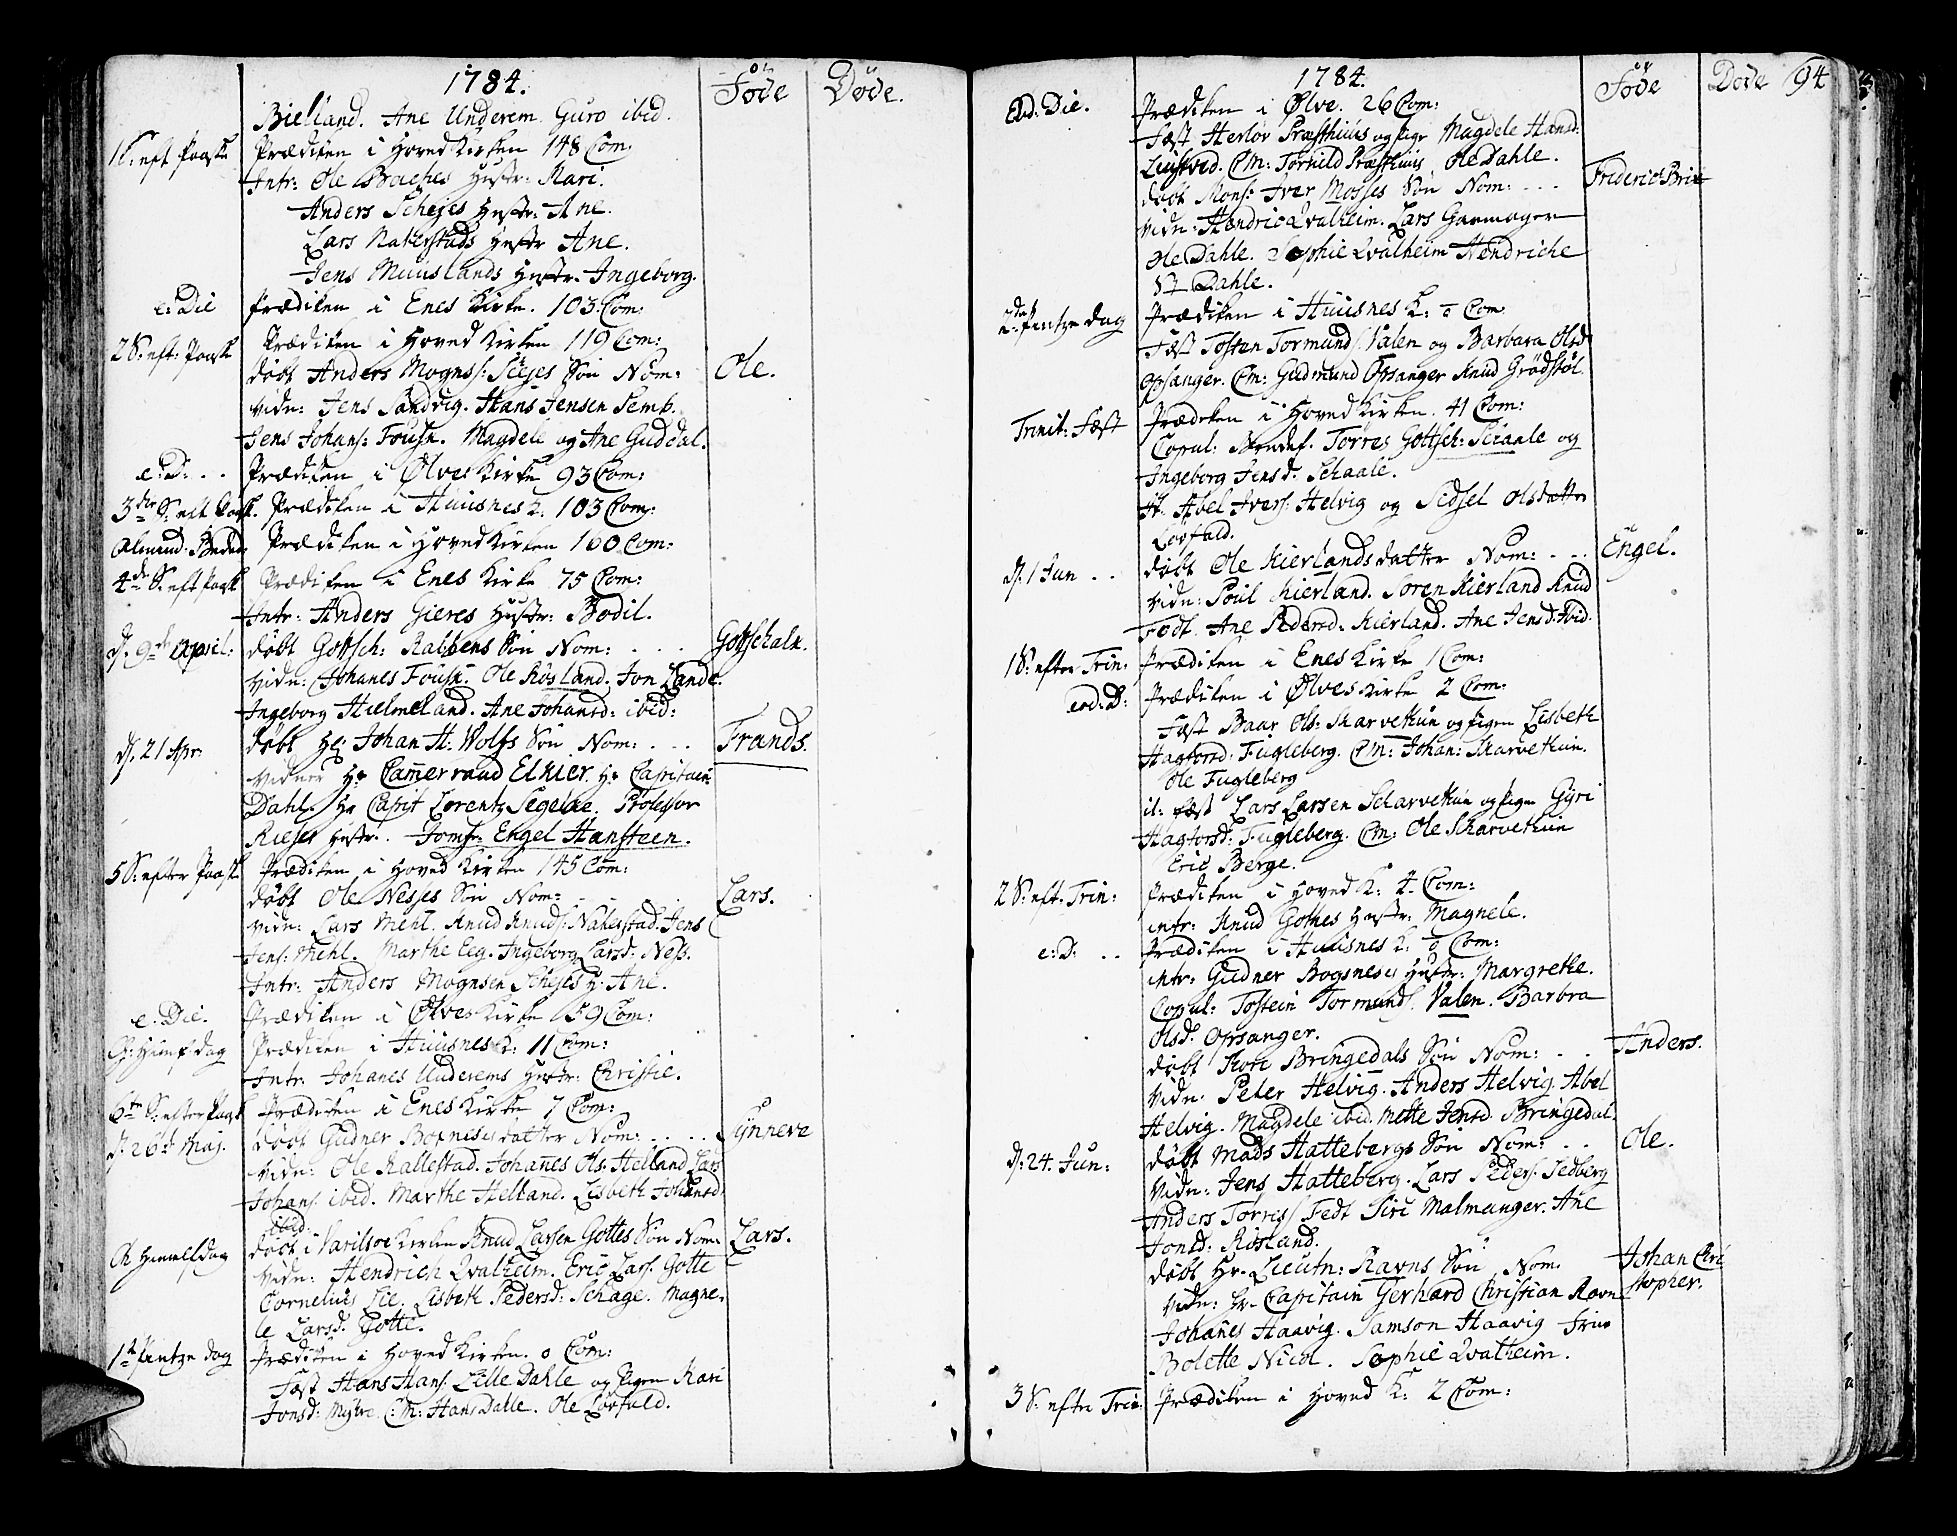 1784.
Föde
Döde.
Bielland. Ane Underem. Guro ibid.
1 S: eft Paaske
Prædiken i Hoved Kirken 148 Com:
Intr: Ole Baches Hustr: Kari.
Anders Schejes Hustr: Ane.
Lars Naterstads Hustr Ane.
Jens Muuslands Hustr. Ingeborg.
e: Die
Prædiken i Enes Kirke. 103 Com:
2 S: eft: Paask
Prædiken i Hoved Kirken 119 Com:
döbt Anders Mognss: Scejes Sön Nom:
Ole.
vidn: Jens Sandvig. Hans Jensen Semb.
Jens Johans: Fousk. Magdele og Ane Guddal.
e: D: . .
Prædiken i Ölves Kirke 93 Com:
3die S: eft Paask.
Prædiken i Huusnes K. 103 Com:
Almind. Bededag
Prædiken i Hoved Kirken 100 Com:
4de S: eft Paask
Prædiken i Enes Kirke 75 Com:
Intr: Anders Gieres Hustr: Bodil.
d. 9de April:
döbt Gottsch: Rabbens Sön Nom: . . .
Gottschalk.
vidn: Johanes Fousk. Ole Rösland. Jon Lande.
Ingeborg Hielmeland. Ane Johansd: ibid:
d. 21 Apr:
döbt Hr: Johan H: Wolfs Sön Nom: . . .
Frands.
vidner Hr Cammerraad Elkier. Hr Capitain
Dahl. Hr Capit Lorentz Segelke. Professor
Rieses Hustr. . Jomfr: Engel Hansteen.
5 S: efter Paask
Prædiken i Hoved Kirken 145 Com:
döbt Ole Nesses Sön Nom: . . .
Lars.
vidn: Lars Mehl. Knud Knuds: Naterstad. Jens
Jens: Mehl. Marthe Eeg. Ingeborg Larsd: Ness.
Intr: Anders Mognsen Schejes H: Ane.
e: Die.
Prædiken i Ölves Kirke 59 Com:
Ch: Himf dag
Prædiken i Huusnes K: 11 Com:
Intr: Johanes Underems Hustr: Christie.
6te S: efter Paask
Prædiken i Enes Kirke 7 Com:
d. 26de Maj.
döbt Gudner Bognesis datter Nom: . . . .
Synneve
vidn: Ole Rallestad. Johanes Ols: Helland Lars
Johans: ibid. Marthe Helland. Lisbeth Johansd
ibid:
Ch Himmelf dag
döbt i Varilsöe Kirken Knud Larsen Gottes Sön Nom:
Lars.
vidn: Hendrich Qvalheim. Eric Lars: Gotte
Cornelius Lie. Lisbeth Pedersd: Schage. Magne-
le Larsd. Gotte.
1te Pintze dag
Prædiken i Hoved Kirken. o Com:
Fæst Hans Hans. Lille Dahle og Pigen Kari
Jonsd: Myhre. C:M: Hans Dalle. Ole Löefald.
1784.
Föde
Döde
94
Eod: Die.
Prædiken i Ölve. 26 Com:
Fæst Herlov Præsthuus og Pige Magdele Hansd.
Leustved. C:M: Torkild Præsthuus Ole Dahle.
döbt Mons: Iver Mosses Sön Nom: . . .
Frideric Brix
vidn: Hendric Qvalheim. Lars Garmager
Ole Dahle. Sophie Qvalheim Hendriche
St Dahle.
2den Pintze dag
Prædiken i Huusnes K: o Com
Fæst Tosten Tormunds: Valen og Barbara Olsd
Opsanger. C:M: Gudmund Opsanger Knud Grödstöl.
Trinit: Fæst
Prædiken i Hoved Kirken. 41 Com:
Copul: Torres Gottsch: Schaale og
Ingeborg Jensd: Schaale.
It. Abel Ivers: Helvig og Sidsel Olsdatter
Löofald.
d: 1 Jun . .
döbt Ole Kierlands datter Nom: . . .
Engel.
vidn: Poul Kierland. Soren Kierland Knud
Födt. Ane Pedersd. Kierland. Ane Jensd. Hvid.
1 S: efter Trin:
Prædiken i Enes Kirke 1 Com:
eod: D:
Prædiken i Ölves Kirke 2 Com:
Fæst Baar Ols: Skarvetun og Pigen Lisbeth
Hagtorsd: Fugleberg. C:M: Johan: Skarvetun.
Ole Fugleberg
it: Fæst Lars Larsen Scharvetun og Pigen Gyri
Hagtorsd: Fugleberg. C:M: Ole Scharvetun
Eric Berge.
2 S: eft. Trin:
Prædiken i Hoved K: 4. Com:
intr: Knud Gottes Hustr: Magnele.
e: D: . .
Prædiken i Huusnes K: o Com:
intr: Gudner Bogsnesis Hustr: Margrethe.
Copul: Tostein Tormunds: Valen. Barbra
Olsd: Opsanger.
döbt Thore Bringedals Sön Nom: . .
Anders.
vidn: Peter Helvig. Anders Helvig. Abel
Helvig. Magdele ibid. Mette Jensd. Bringedal.
d: 24. Jun:
döbt Mads Hattebergs Sön Nom: . .
Ole.
vidn: Jens Hatteberg. Lars Peders: Sedberg
Anders Torris: Fedt Siri Malmanger. Ane
Jonsd: Rösland.
döbt Hr. Lieutn: Ravns Sön Nom.
Johan Chri
stopher.
vidn: Hr. Capitain Gerhard Christian Ravn
Johanes Haavig. Samson Haavig Frue
Bolette Nicol. Sophie Qvalheim.
3 S: efter Trin:
Prædiken i Hoved K: 2 Com: